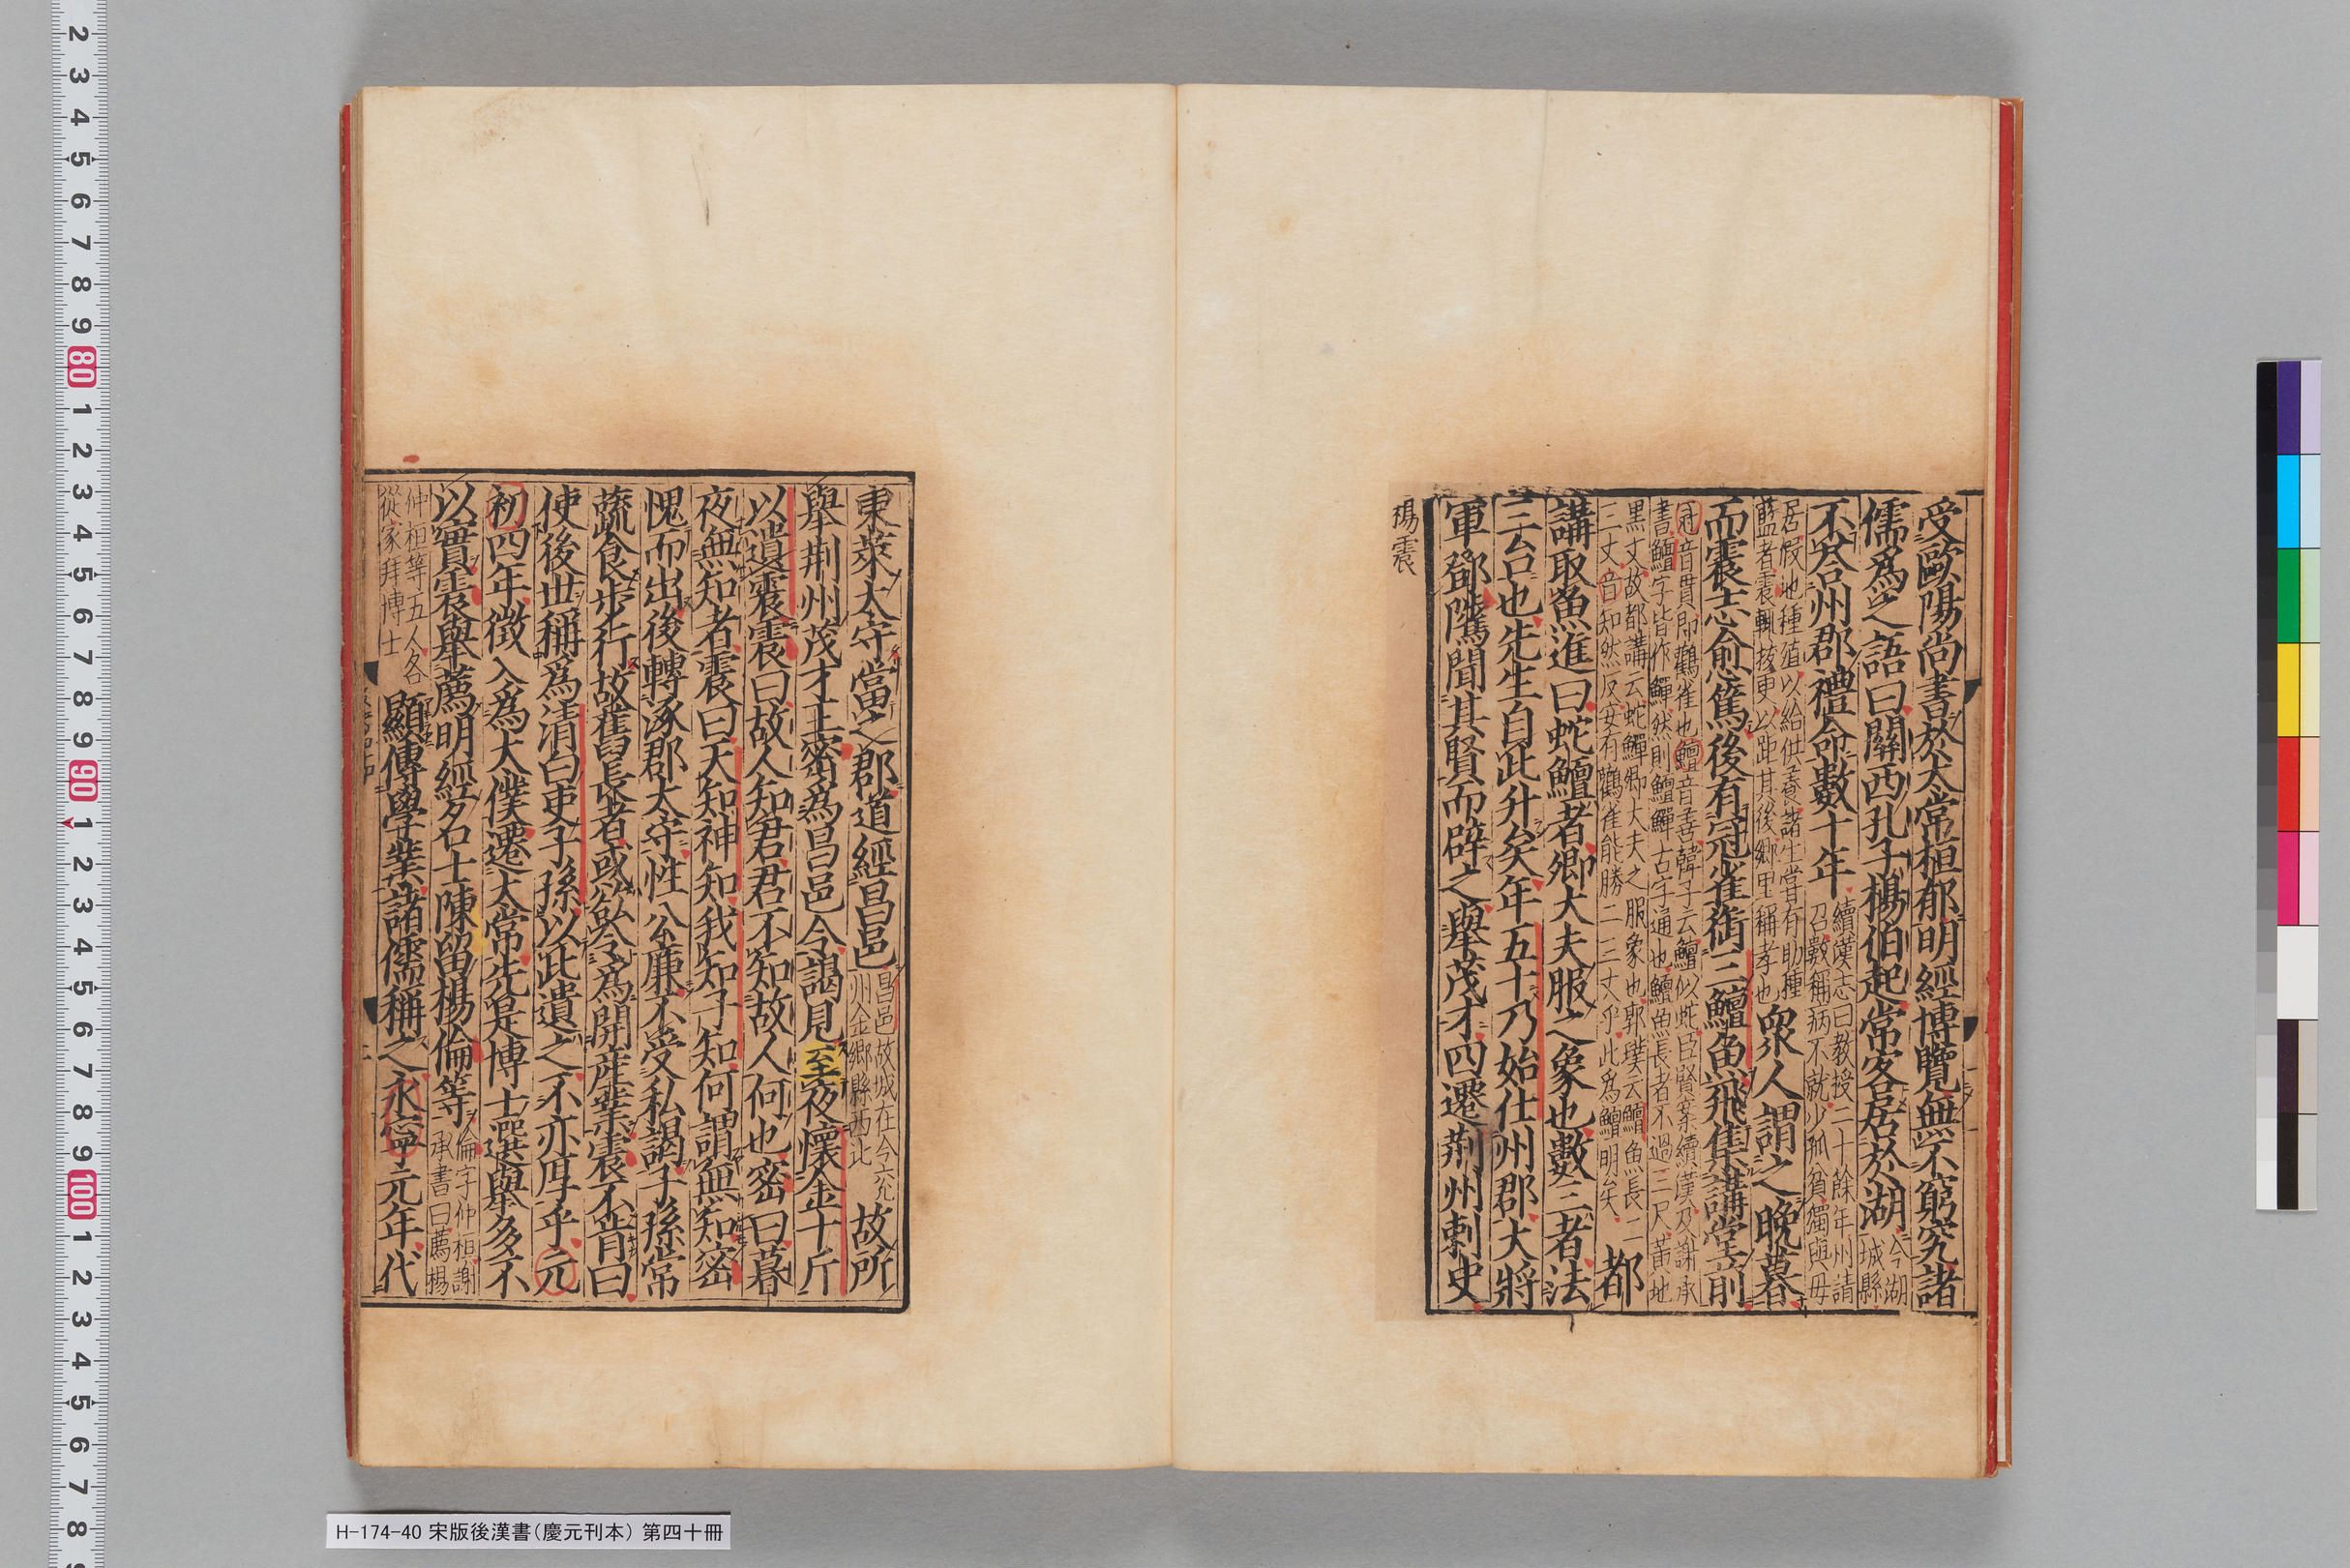 受歐陽尚書於太常桓郁明經博覽無不窮究諸
儒爲之語曰關西孔子楊伯起常客居於湖今湖
城縣
不荅州郡禮命數十年續漢志曰教授二十餘年州請
召數稱病不就少孤貧獨與母
居假地種殖以給供養諸生嘗有助種
藍者震輒拔更以距其後鄉里稱孝也衆人謂之晚暮
而震志愈篤後有冠雀銜三鱣魚飛集講堂前
冠音貫即鸛雀也鱣音善韓子云鱣似蛇臣賢案續漢及謝承
書鱣字皆作鱓然則鱣鱓古字通也鱣魚長者不過三尺黃地
黑文故都講云蛇鱓卿大夫之服象也郭璞云鱣魚長二
三丈音知然反安有鸛雀能勝二三丈乎此爲鱣明矣都
講取魚進曰蛇鱣者卿大夫服之象也數三者法
三台也先生自此升矣年五十乃始仕州郡大將
軍鄧騭聞其賢而辟之舉茂才四遷荆州刺史
楊震
東萊太守當之郡道經昌邑昌邑故城在今兖
州金鄉縣西北故所
舉荆州茂才王密爲昌邑令謁見至夜懷金十斤
以遺震震曰故人知君君不知故人何也密曰暮
夜無知者震曰天知神知我知子知何謂無知密
愧而出後轉涿郡太守性公廉不受私謁子孫常
蔬食步行故舊長者或欲令爲開産業震不肯曰
使後世稱爲清白吏子孫以此遺之不亦厚乎元
初四年徵入爲太僕遷太常先是博士選舉多不
以實震舉薦明經名士陳留楊倫等倫字仲桓謝
承書曰薦楊
仲桓等五人各
從家拜博士顯傳學業諸儒稱之永寧元年代
H-174-40 宋版後漢書（慶元刊本） 第四十冊